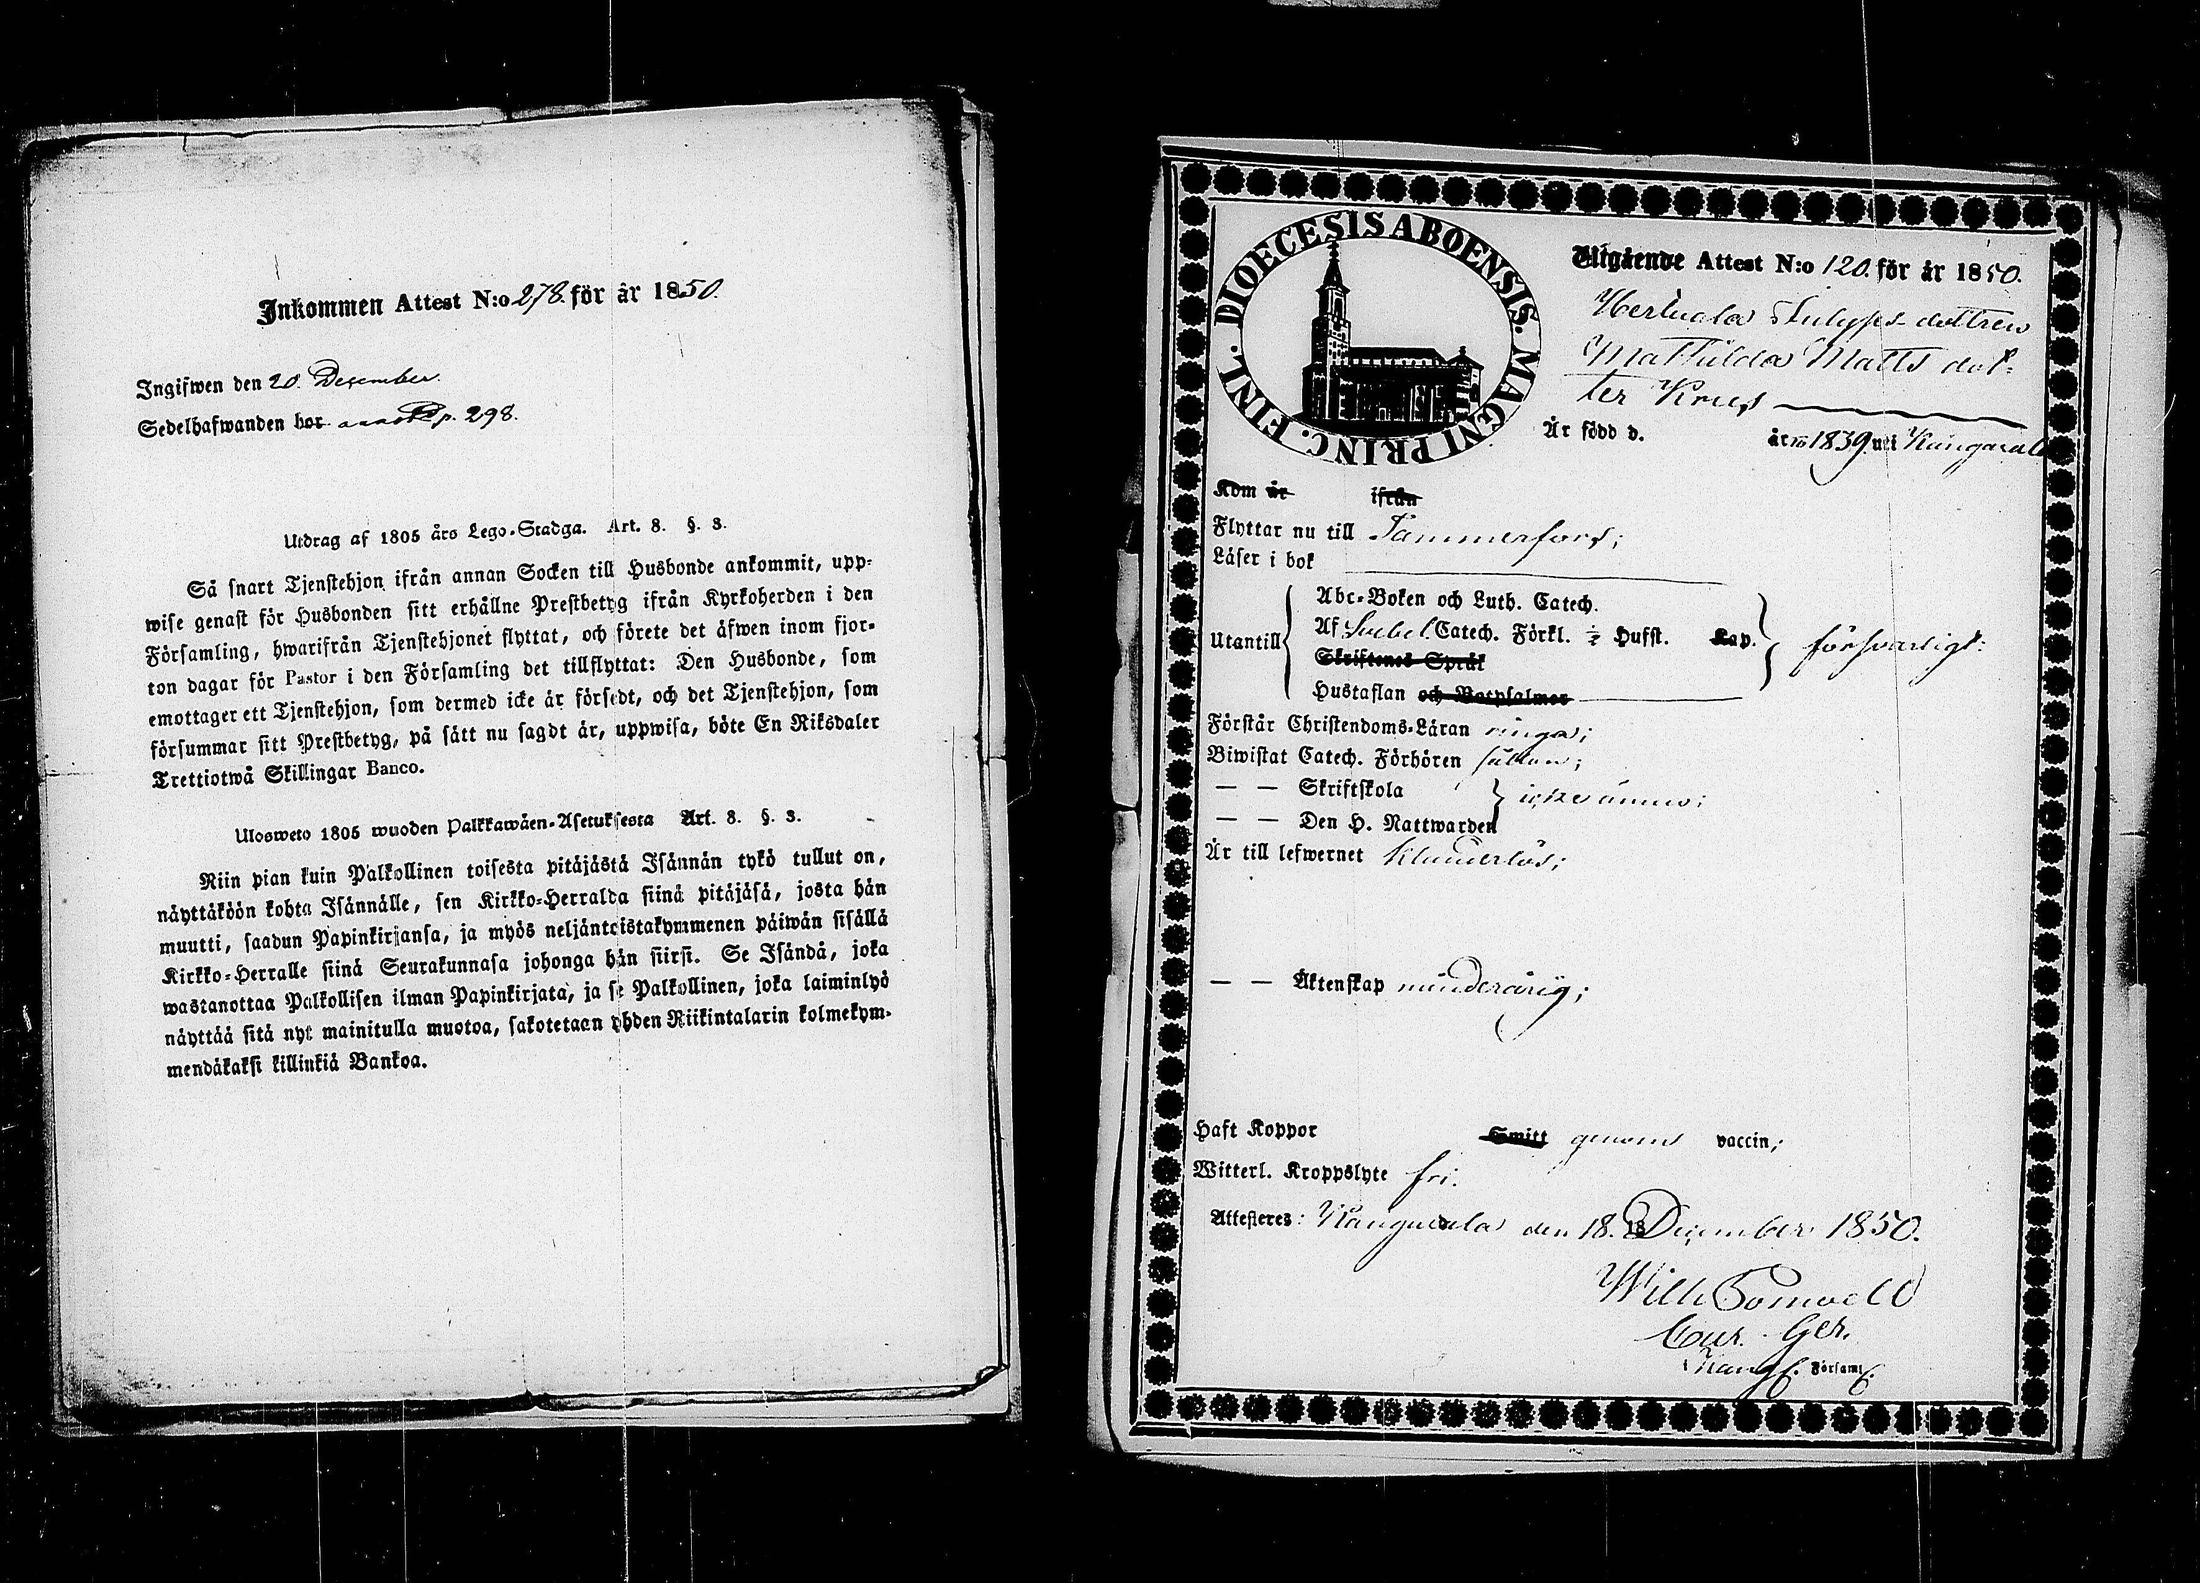 Inkommen Attest N:o 278. för år 1850.
Ingifwen den 20. December.
Sedelhafwanden bor p. 298.
Utdrag af 1805 års Lego-Stadga. Art. 8. §. 3.
Så snart Tjenstehjon ifrån annan Socken till Husbonde ankommit, upp-
wise genast för Husbonden sitt erhållne Prestbetyg ifrån Kyrkoherden i den
Församling, hwarifrån Tjenstehjonet flyttat, och förete det äfwen inom fjor-
ton dagar för Pastor i den Församling det tillflyttat: Den Husbonde, som
emottager ett Tjenstehjon, som dermed icke är försedt, och det Tjenstehjon, som
försummar sitt Prestbetyg, på sätt nu sagdt är, uppwisa, böte En Riksdaler
Trettiotwå Skillingar Banco.
Ulosweto 1805 wuoden Palkkawäen-Asetuksesta Art. 8. §. 3.
Niin pian kuin Palkollinen toisesta pitäjästä Isännän tykö tullut on,
näyttäköön kohta Isännälle, sen Kirkko-Herralda siinä pitäjäsä, josta hän
muutti, saadun Papinkirjansa, ja myös neljäntoistakymmenen päiwän sisällä
Kirkko-Herralle siinä Seurakunnasa johonga hän siirsi. Se Isändä, joka
wastanottaa Palkollisen ilman Papinkirjata, ja se Palkollinen, joka laiminlyö
näyttää sitä nyt mainitulla muotoa, sakotetaan yhden Riikintalarin kolmekym-
mendäkaksi killinkiä Bankoa.
DIOECESIS ABOENSIS. MAGNI PRINC. FINL.
Utgående Attest N:o 120. för år 1850.
dottren
Mathilda Matts dot-
ter
Är född d. år 1839 uti Kangasala
Kom år ifrån
Flyttar nu till Tammerfors;
Läser i bok
Utantill
Abc-Boken och Luth. Catech.
Af Svebel. Catech. Förkl. Hufst. Kap.
Skriftenes Språk
Hustaflan och Botpsalmer
försvarligt:
Förstår Christendoms-Läran ringa;
Biwistat Catech. Förhören sällan;
— — Skriftskola
icke ännu;
— — Den H. Nattwarden
Är till lefwernet klanderlös;
— — Äktenskap minderårig;
Haft Koppor Smitt genom vaccin;
Witterl. Kroppslyte fri.
Attesteres: Kangasala den 18. December 1850.
Wilh
Cur. Ger.
Kang. Församl.